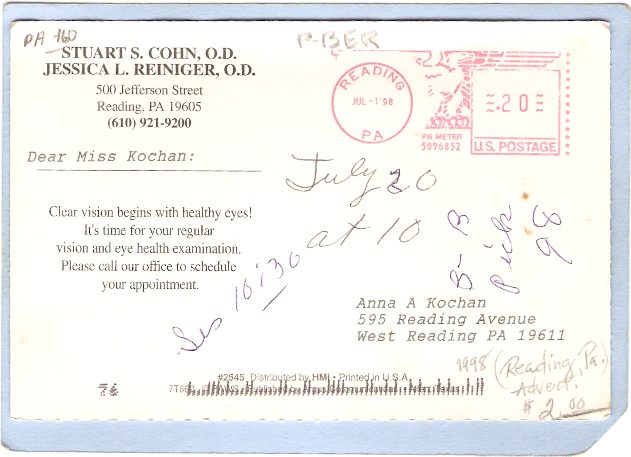 PA 160
P-BER
STUART S. COHN, O.D.
JESSICA L. REINIGER, O.D.
500 Jefferson Street
Reading, PA 19605
(610) 921-9200
READING
JUL -1'98
PA
PB METER
5096852
.20
U.S. POSTAGE
Dear Miss Kochan:
July 20
at 10
B-B
Pick
98
Clear vision begins with healthy eyes!
It's time for your regular
vision and eye health examination.
Please call our office to schedule
your appointment.
10:30
Anna A Kochan
595 Reading Avenue
West Reading PA 19611
1998 (Reading, Pa.)
Advert.,
$2.00
#2545 Distributed by HMI • Printed in U.S.A.
76